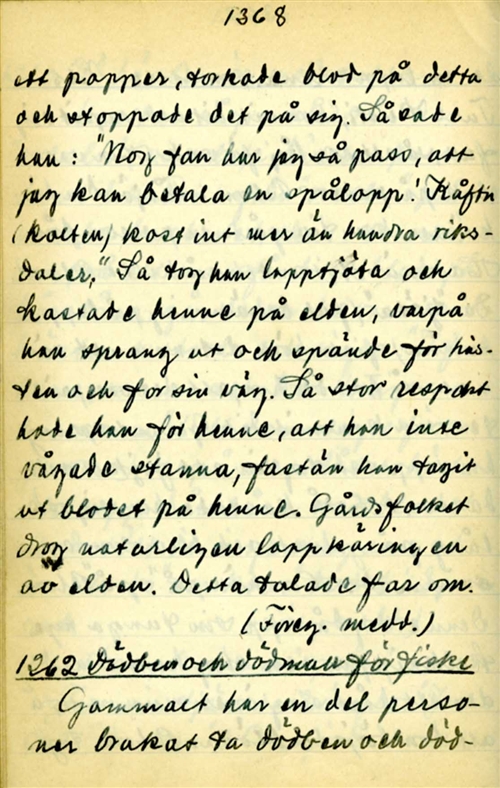 1368
ett papper, torkade blod på detta
och stoppade det på sig. Så sade
han: "Nog fan har jag så pass, att
jag kan betala en spålapp! Kåftn
(kolten) kost int mer än hundra riks-
daler." Så tog han lapptjåta och
kastade henne på elden, varpå
han sprang ut och spände för häs-
ten och for sin väg. Så stor respekt
hade han för henne, att han inte
vågade stanna, fastän han tagit
ut blodet på henne. Gårdsfolket
drog naturligen lappkäringen
av elden. Detta talade far om.
(Föreg. medd.)
1262 Dödben och dödmull för fiske
Gammalt har en del perso-
ner brukat ta dödben och död-